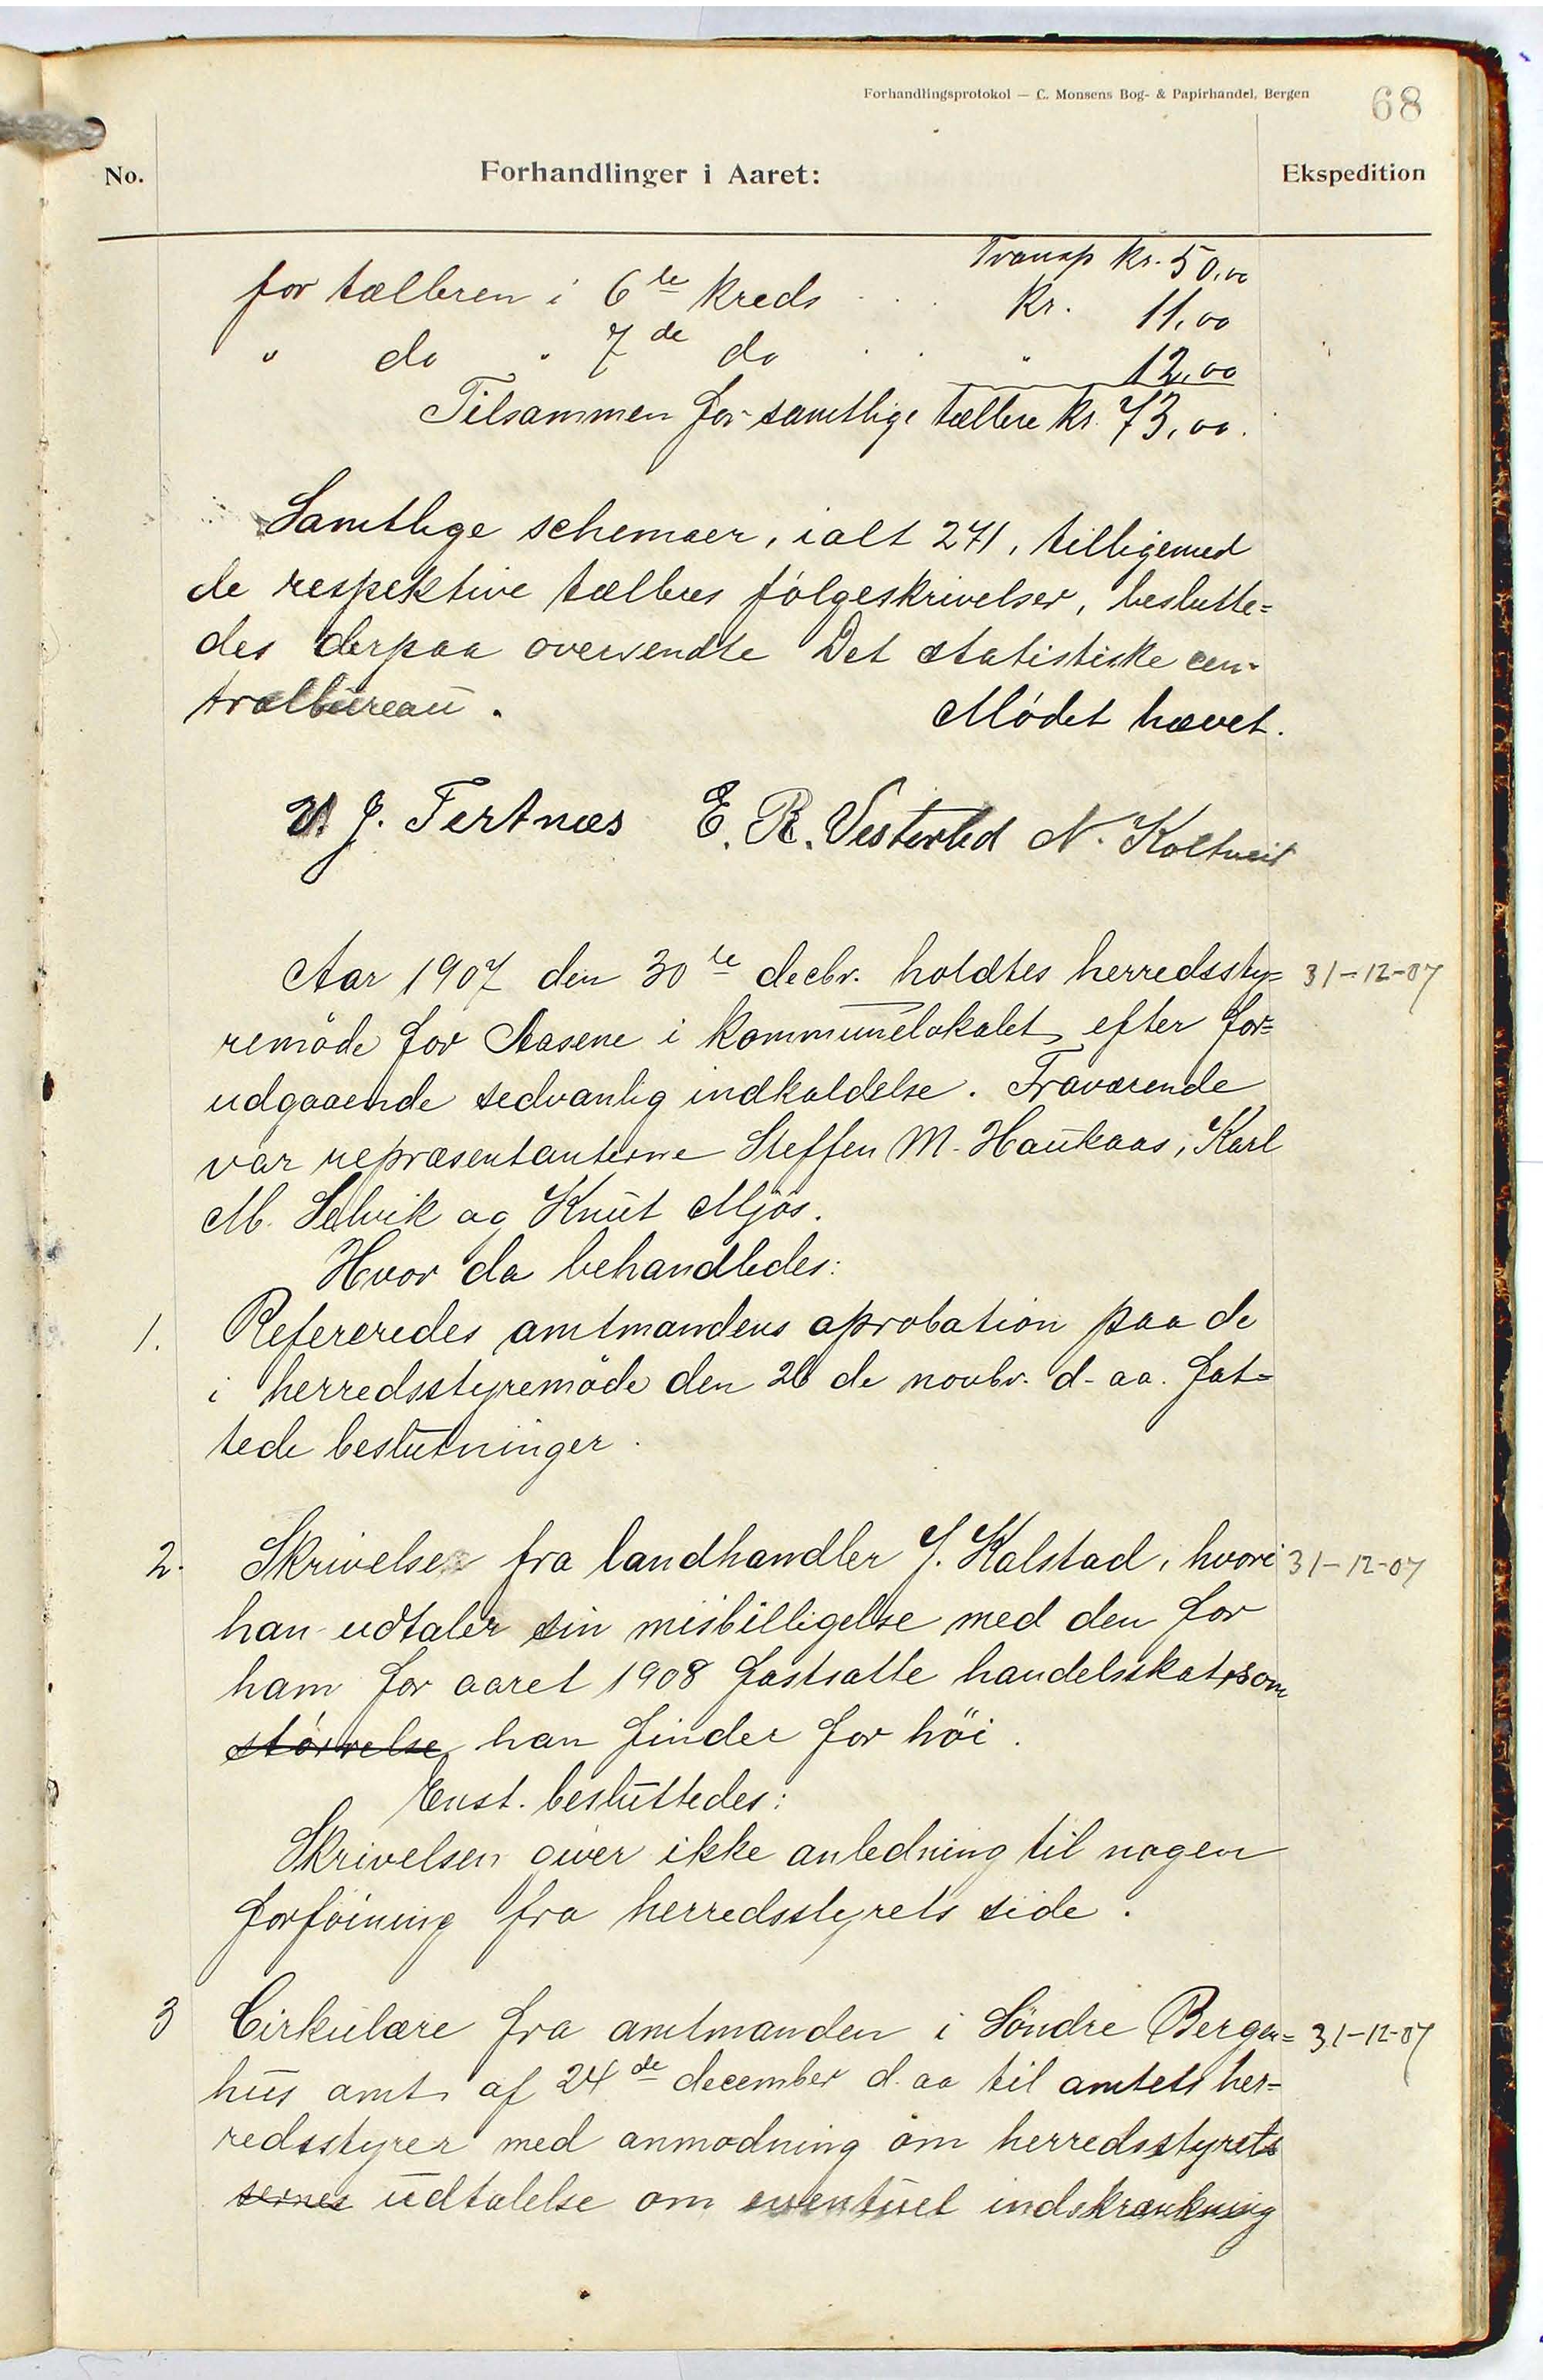 Forhandlingsprotokol — C. Monsens Bog- & Papirhandel, Bergen 68
No. Forhandlinger i Aaret: Ekspedition
Transp kr. 50,00
for tælleren i 6te kreds . . kr. 11,00
" do " 7de do . . " 12,00
Tilsammen for samtlige tællere kr. 73,00.
Samtlige schemaer, ialt 271, tilligemed
de respektive tælleres følgeskrivelser, beslutte=
des derpaa oversendte Det statistiske cen-
tralbureau.
Mödet hævet.
J. Tertnæs E. R. Vesterlid N. Koltveit
Aar 1907 den 30te decbr. holdtes herredssty= 31-12-07
remöde for Aasene i kommunelokalet efter for=
udgaaende sedvanlig indkaldelse. Fraværende
var repræsentanterne Steffen M. Haukaas, Karl
M. Selvik og Knut Mjös.
Hvor da behandledes:
1. Refereredes amtmandens aprobation paa de
i herredsstyremöde den 26de novbr. d. aa. fat=
tede beslutninger.
2. Skrivelse fra landhandler J. Kalstad, hvori 31-12-07
han udtaler sin misbilligelse med den for
ham for aaret 1908 fastsatte handelsskat, som
størrelse han finder for höi.
Enst. besluttedes:
Skrivelsen giver ikke anledning til nogen
forföining fra herredsstyrets side.
3 Cirkulære fra amtmanden i Söndre Bergen= 31-12-07
hus amt af 24de december d. aa til amtets her=
redsstyrer med anmodning om herredsstyrets
sernes udtalelse om eventuel indskrænkning